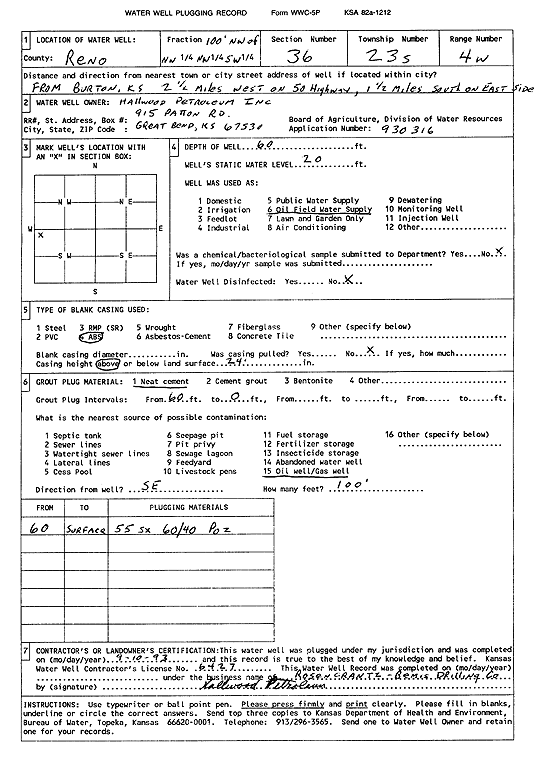 WATER WELL PLUGGING RECORD Form WWC-5P KSA 82a-1212
1 LOCATION OF WATER WELL: Fraction 100' NW of Section Number Township Number Range Number
County: RENO NW 1/4 NW 1/4 SW 1/4 36 23 S 4 W
Distance and direction from nearest town or city street address of well if located within city?
FROM BURTON, KS 2 1/2 MILES WEST ON 50 HIGHWAY, 1 1/2 MILES SOUTH ON EAST SIDE
2 WATER WELL OWNER: HALLWOOD PETROLEUM INC
915 PATTON RD.
RR#, St. Address, Box #: Board of Agriculture, Division of Water Resources
City, State, ZIP Code : GREAT BEND, KS 67530 Application Number: 930316
3 MARK WELL'S LOCATION WITH AN "X" IN SECTION BOX:
N
N W N E
W X E
S W S E
S
4 DEPTH OF WELL...60...ft.
WELL'S STATIC WATER LEVEL...20...ft.
WELL WAS USED AS:
1 Domestic 5 Public Water Supply 9 Dewatering
2 Irrigation 6 Oil Field Water Supply 10 Monitoring Well
3 Feedlot 7 Lawn and Garden Only 11 Injection Well
4 Industrial 8 Air Conditioning 12 Other...
Was a chemical/bacteriological sample submitted to Department? Yes....No.X.
If yes, mo/day/yr sample was submitted...
Water Well Disinfected: Yes...... No..X...
5 TYPE OF BLANK CASING USED:
1 Steel 3 RMP (SR) 5 Wrought 7 Fiberglass 9 Other (specify below)
2 PVC 4 ABS 6 Asbestos-Cement 8 Concrete Tile
Blank casing diameter.........in. Was casing pulled? Yes...... No..X... If yes, how much...
Casing height above or below land surface..24...in.
6 GROUT PLUG MATERIAL: 1 Neat cement 2 Cement grout 3 Bentonite 4 Other...
Grout Plug Intervals: From.60..ft. to..0..ft., From......ft. to ......ft., From...... to......ft.
What is the nearest source of possible contamination:
1 Septic tank 6 Seepage pit 11 Fuel storage 16 Other (specify below)
2 Sewer lines 7 Pit privy 12 Fertilizer storage
3 Watertight sewer lines 8 Sewage lagoon 13 Insecticide storage
4 Lateral lines 9 Feedyard 14 Abandoned water well
5 Cess Pool 10 Livestock pens 15 Oil well/Gas well
Direction from well?...SE... How many feet?...100'...
FROM TO PLUGGING MATERIALS
60 SURFACE 55 SX 60/40 POZ
7 CONTRACTOR'S OR LANDOWNER'S CERTIFICATION:This water well was plugged under my jurisdiction and was completed
on (mo/day/year) 9-10-93 and this record is true to the best of my knowledge and belief. Kansas
Water Well Contractor's License No. 6427 This Water Well Record was completed on (mo/day/year)
under the business name of ROSENCRANTZ-BEMIS DRILLING CO.
by (signature) Hallwood Petroleum
INSTRUCTIONS: Use typewriter or ball point pen. Please press firmly and print clearly. Please fill in blanks,
underline or circle the correct answers. Send top three copies to Kansas Department of Health and Environment,
Bureau of Water, Topeka, Kansas 66620-0001. Telephone: 913/296-3565. Send one to Water Well Owner and retain
one for your records.